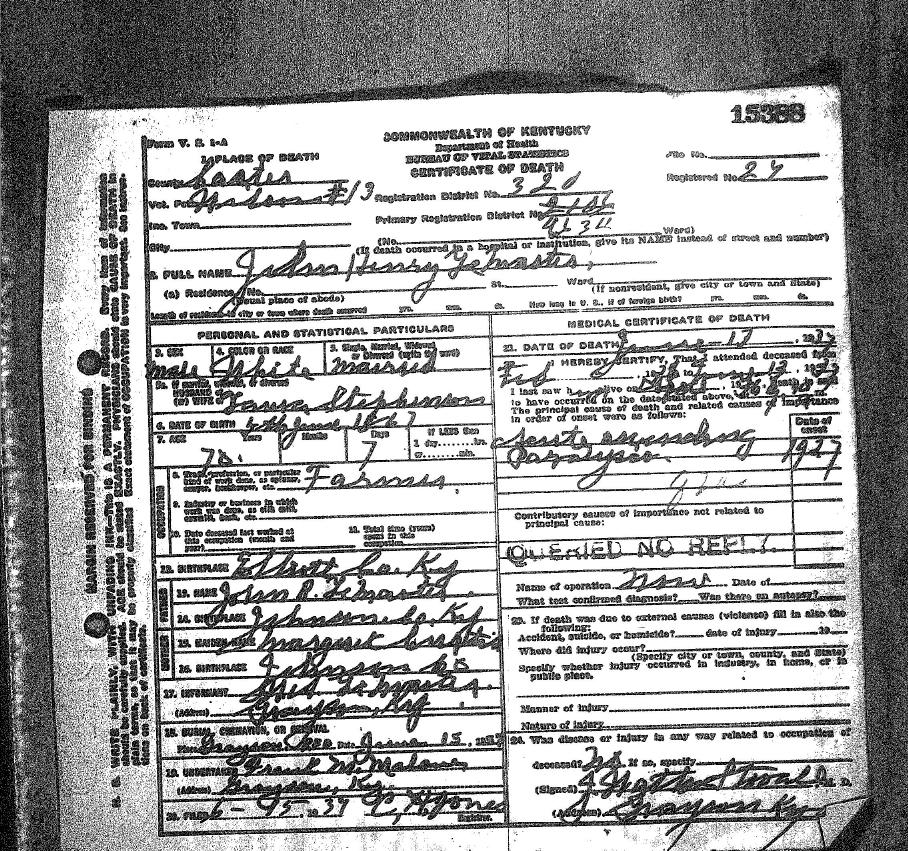 15388
Form V. S. 1-A
COMMONWEALTH OF KENTUCKY
Department of Health
BUREAU OF VITAL STATISTICS
CERTIFICATE OF DEATH
1. PLACE OF DEATH
File No.
Registered No. 27
County Carter
Vot. #13
Registration District No. 320
Inc. Town
Primary Registration District No.
City (No. Ward)
(If death occurred in a hospital or institution, give its NAME instead of street and number)
2. FULL NAME John Henry LeMaster
(a) Residence. No. St. Ward
(Usual place of abode) (If nonresident, give city or town and State)
Length of residence in city or town where death occurred yrs. mos. ds. How long in U. S., if of foreign birth? yrs. mos. ds.
PERSONAL AND STATISTICAL PARTICULARS
3. SEX 4. COLOR OR RACE 5. Single, Married, Widowed, or Divorced (write the word)
male White Married
5a. If married, widowed, or divorced
HUSBAND of
(or) WIFE of Stephenson
6. DATE OF BIRTH June 1867
7. AGE Years Months Days If LESS than
70 7 1 day hrs.
or min.
8. Trade, profession, or particular
kind of work done, as spinner,
sawyer, bookkeeper, etc. Farmer
9. Industry or business in which
work was done, as silk mill,
sawmill, bank, etc.
10. Date deceased last worked at
this occupation (month and
year) 11. Total time (years)
spent in this
occupation
12. BIRTHPLACE Elliott Co. Ky
13. NAME John R. LeMaster
14. BIRTHPLACE Johnson Co. Ky
15. MAIDEN NAME Margaret
16. BIRTHPLACE Johnson Co
17. INFORMANT LeMaster
(Address) Grayson, Ky
18. BURIAL, CREMATION, OR REMOVAL
Place Grayson Date June 15, 1937
19. UNDERTAKER Frank M. Malone
(Address) Grayson, Ky.
20. FILED 6-15, 1937 C. H. Jones
Registrar.
MEDICAL CERTIFICATE OF DEATH
21. DATE OF DEATH June 13, 1937
22. I HEREBY CERTIFY, That I attended deceased from
Feb
I last saw h alive on
to have occurred on the date stated above, at m.
The principal cause of death and related causes of importance
in order of onset were as follows:
Date of
onset
Acute ascending
Paralysis 1937
Contributory causes of importance not related to
principal cause:
QUERIED NO REPLY.
Name of operation none Date of
What test confirmed diagnosis? Was there an autopsy?
23. If death was due to external causes (violence) fill in also the
following:
Accident, suicide, or homicide? date of injury 19
Where did injury occur?
(Specify city or town, county, and State)
Specify whether injury occurred in industry, in home, or in
public place.
Manner of injury
Nature of injury
24. Was disease or injury in any way related to occupation of
deceased? No. If so, specify
(Signed) M. D.
(Address) Grayson Ky
MARGIN RESERVED FOR BINDING
N. B. WRITE PLAINLY, WITH UNFADING INK—THIS IS A PERMANENT RECORD. Every item of information
should be carefully supplied. AGE should be stated EXACTLY. PHYSICIANS should state CAUSE OF DEATH in
plain terms, so that it may be properly classified. Exact statement of OCCUPATION is very important. See instruc-
tions on back of certificate.